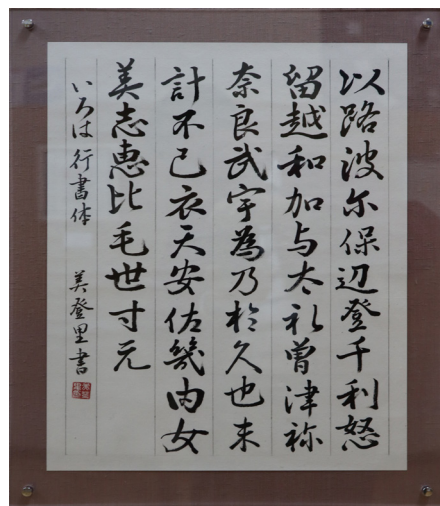 以路波尓保辺登千利怒
留越和加与太礼曽津祢
奈良武宇為乃於久也末
計不己衣天安佐幾由女
美志恵比毛世寸元
いろは 行書体 美登里書